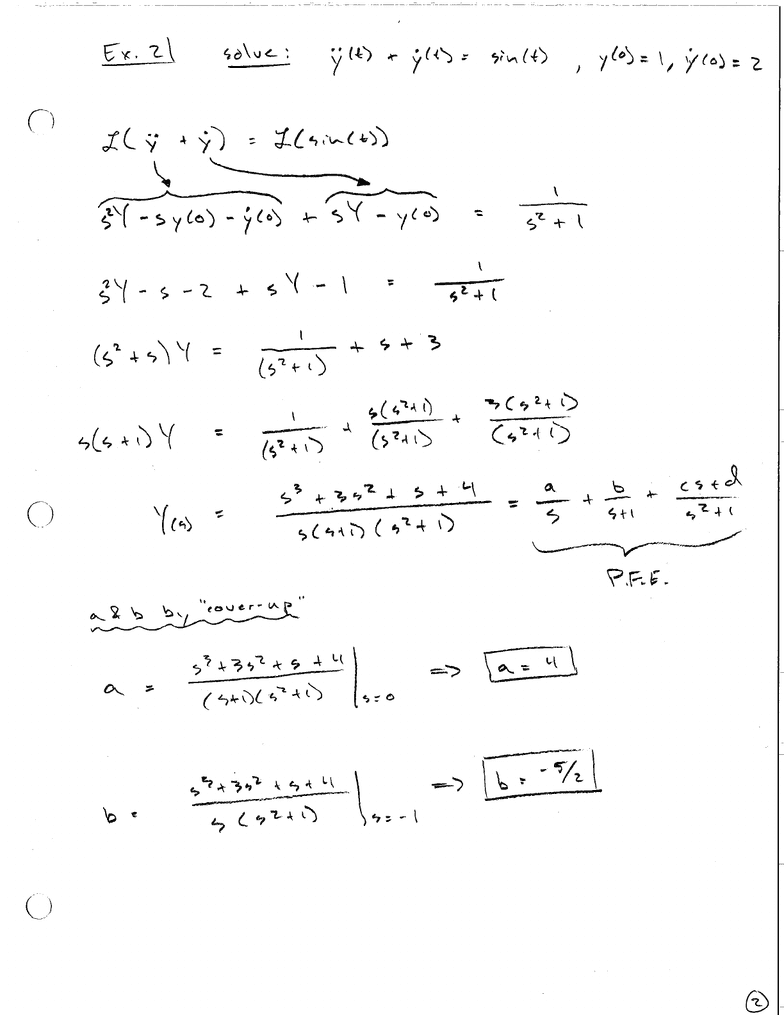 Ex. 2 solve: ÿ(t) + ẏ(t) = sin(t) , y(0) = 1, ẏ(0) = 2
ℒ(ÿ + ẏ) = ℒ(sin(t))
s²Y - sy(0) - ẏ(0) + sY - y(0) = 1/(s² + 1)
s²Y - s - 2 + sY - 1 = 1/(s² + 1)
(s² + s)Y = 1/(s² + 1) + s + 3
s(s+1)Y = 1/(s² + 1) + s(s²+1)/(s²+1) + 3(s²+1)/(s²+1)
Y(s) = (s³ + 3s² + s + 4)/(s(s+1)(s²+1)) = a/s + b/(s+1) + (cs+d)/(s²+1)
P.F.E.
a & b by "cover-up"
a = (s³+3s²+s+4)/((s+1)(s²+1)) |s=0 => a = 4
b = (s³+3s²+s+4)/(s(s²+1)) |s=-1 => b = -5/2
2